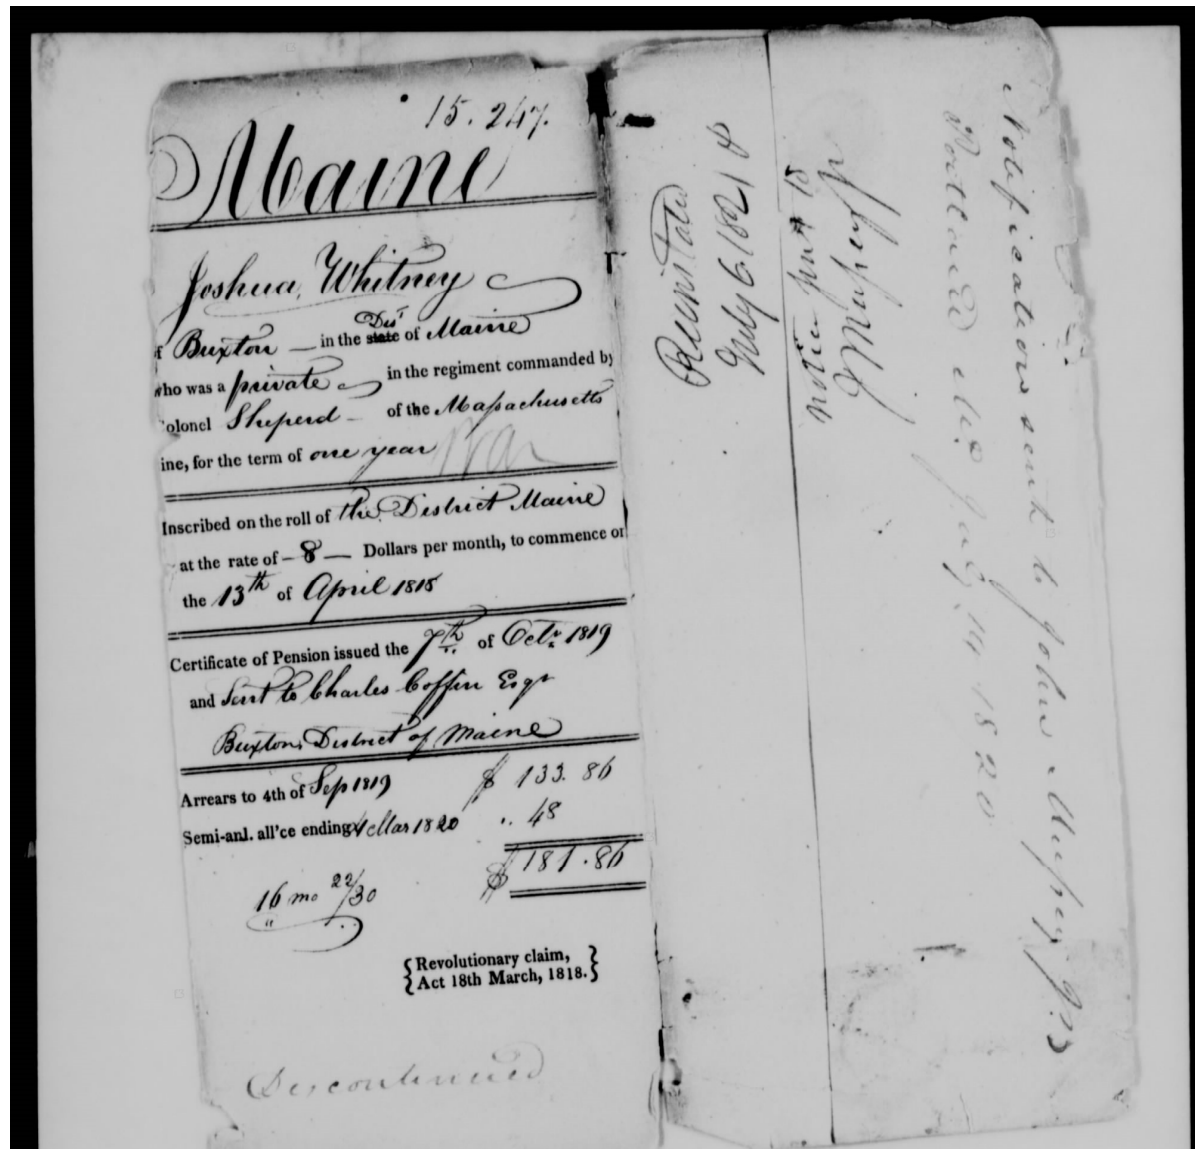 15.247.
Maine
Joshua Whitney
of Buxton — in the Dis't state of Maine
who was a private in the regiment commanded by
Colonel Sheperd — of the Massachusetts
ine, for the term of one year
Inscribed on the roll of the District Maine
at the rate of — 8 — Dollars per month, to commence on
the 13th of April 1818
Certificate of Pension issued the 7th of Octr. 1819
and Sent to Charles Coffin Esqr
Buxton, District of Maine
Arrears to 4th of Sep 1819 $ 133.86
Semi-anl. all'ce ending 4 Mar 1820 .. 48
$ 181.86
16 mo 22/30
{Revolutionary claim,
Act 18th March, 1818.}
Discontinued
Reinstated
July 6 1821
Notice sent to
Notification sent to John
July 14 1820